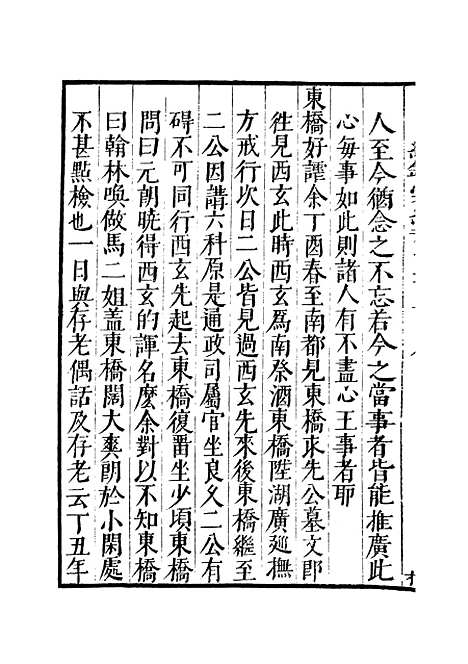 人至今猶念之不忘若今之當事者皆能推廣此
心每事如此則諸人有不盡心王事者耶
東橋好謔余丁酉春至南都見東橋求先公墓文即
徃見西玄此時西玄爲南祭酒東橋陞湖廣廵撫
方戒行次日二公皆見過西玄先來後東橋繼至
二公因講六科原是通政司屬官坐良久二公有
碍不可同行西玄先起去東橋復畱坐少頃東橋
問曰元朗曉得西玄的諢名麼余對以不知東橋
曰翰林喚做馬二姐蓋東橋闊大爽朗於小閑處
不甚點檢也一日與存老偶話及存老云丁丑年